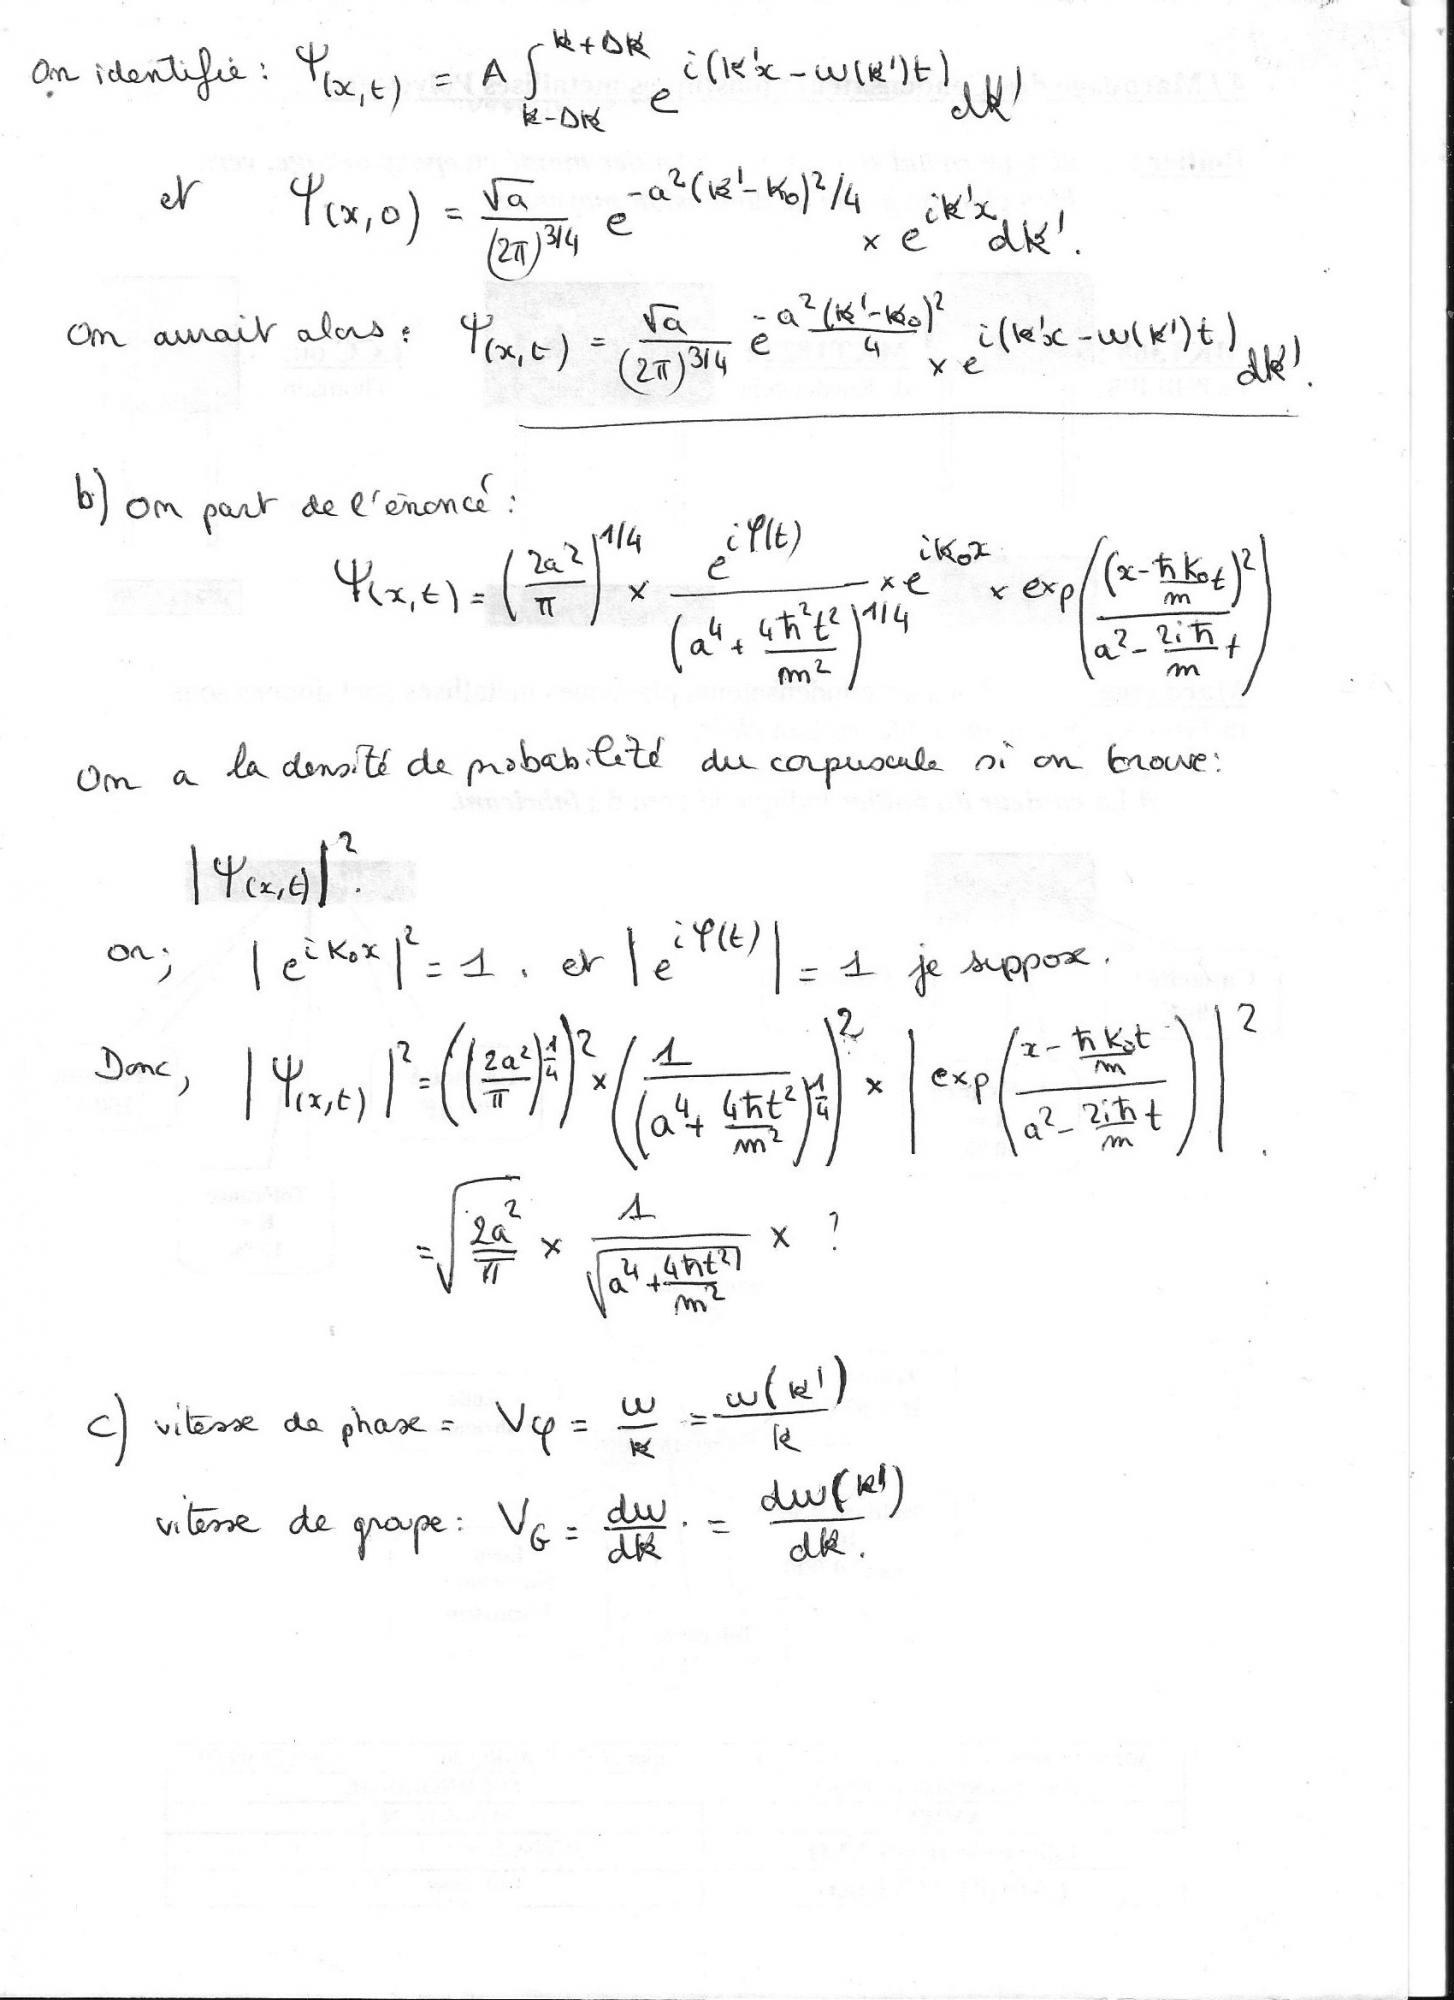 On identifie : Ψ(x,t) = A ∫_{k-Δk}^{k+Δk} e^{i(k'x - ω(k')t)} dk'
et Ψ(x,0) = √a/(2π)^{3/4} e^{-a²(k'-k₀)²/4} × e^{ik'x} dk'.
On aurait alors : Ψ(x,t) = √a/(2π)^{3/4} e^{-a²(k'-k₀)²/4} × e^{i(k'x - ω(k')t)} dk'.
b) On part de l'énoncé :
Ψ(x,t) = (2a²/π)^{1/4} × e^{iφ(t)}/(a⁴ + 4ħ²t²/m²)^{1/4} × e^{ik₀x} × exp((x - ħk₀/m t)²/(a² - 2iħ/m t))
On a la densité de probabilité du corpuscule si on trouve :
|Ψ(x,t)|².
or ; |e^{ik₀x}|² = 1. et |e^{iφ(t)}| = 1 je suppose.
Donc, |Ψ(x,t)|² = ((2a²/π)^{1/4})² × (1/(a⁴ + 4ħt²/m²)^{1/4})² × |exp((x - ħk₀t/m)/(a² - 2iħ/m t))|².
= √(2a²/π) × 1/√(a⁴ + 4ħt²/m²) × ?
c) vitesse de phase = Vφ = ω/k = ω(k')/k
vitesse de groupe : V_G = dω/dk . = dω(k')/dk.